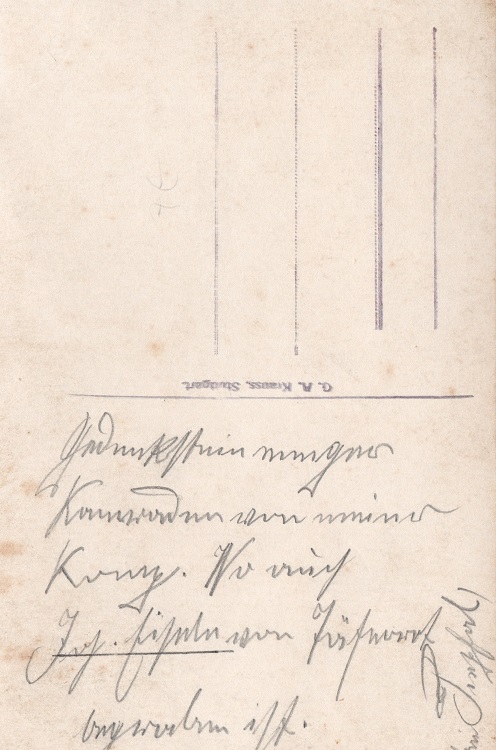 G. A. Krauss, Stuttgart.
Gedenkstein einiger
Kameraden von meiner
Komp. Wo auch
Joh. Eisele von
begraben ist.